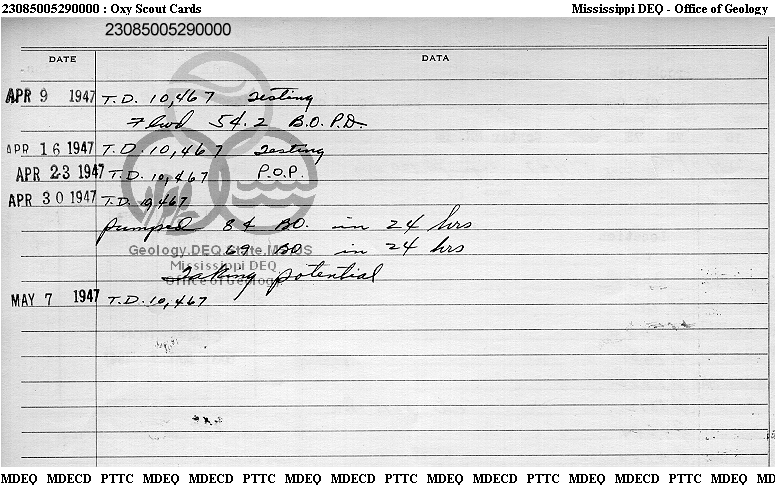 23085005290000 : Oxy Scout Cards Mississippi DEQ - Office of Geology
23085005290000
DATE DATA
APR 9 1947 T.D. 10,467 Testing
Flwd 54.2 B.O.P.D.
APR 16 1947 T.D. 10,467 Testing
APR 23 1947 T.D. 10,467 P.O.P.
APR 30 1947 T.D. 10,467
pumped 84 BO. in 24 hrs
Geology.DEQ.State.MS.US
69 BO in 24 hrs
Mississippi DEQ
Taking potential
Office of Geology
MAY 7 1947 T.D. 10,467
MDEQ MDECD PTTC MDEQ MDECD PTTC MDEQ MDECD PTTC MDEQ MDECD PTTC MDEQ MDECD PTTC MDEQ MD